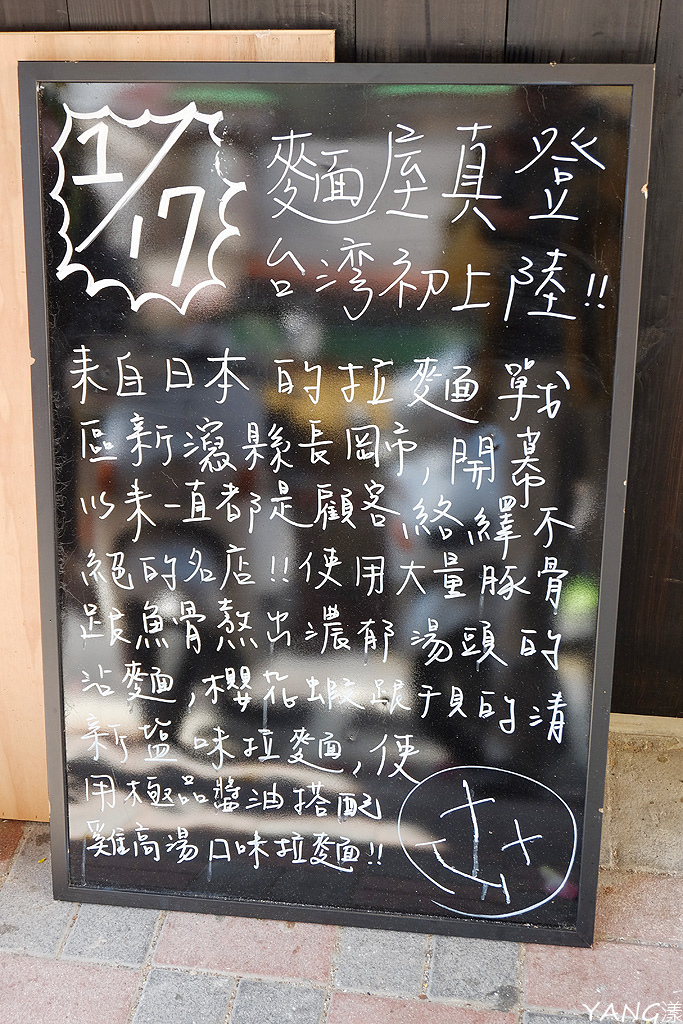 1/17
麵屋真登
台湾初上陸!!
来自日本的拉麵戰
區新瀉縣長岡市,開幕
以来一直都是顧客絡繹不
絕的名店!!使用大量豚骨
跟魚骨熬出濃郁湯頭的
沾麵,櫻花蝦跟干貝的清
新塩味拉麵,使
用極品醬油搭配
雞高湯口味拉麵!!
YANG漾